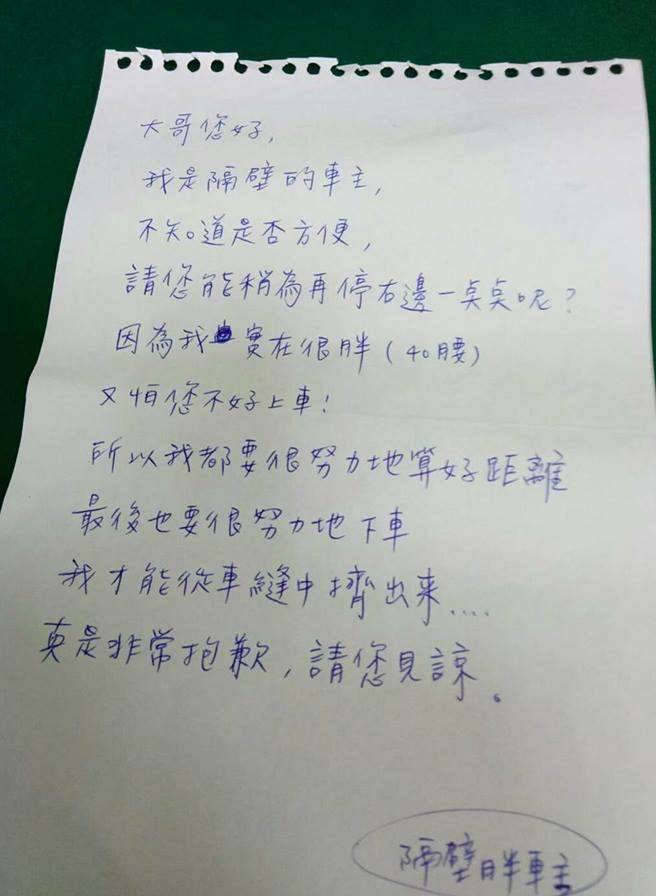 大哥您好,
我是隔壁的車主,
不知道是否方便,
請您能稍為再停右邊一點點呢?
因為我實在很胖(40腰)
又怕您不好上車!
所以我都要很努力地算好距離
最後也要很努力地下車
我才能從車縫中擠出來....
真是非常抱歉,請您見諒。
隔壁胖車主